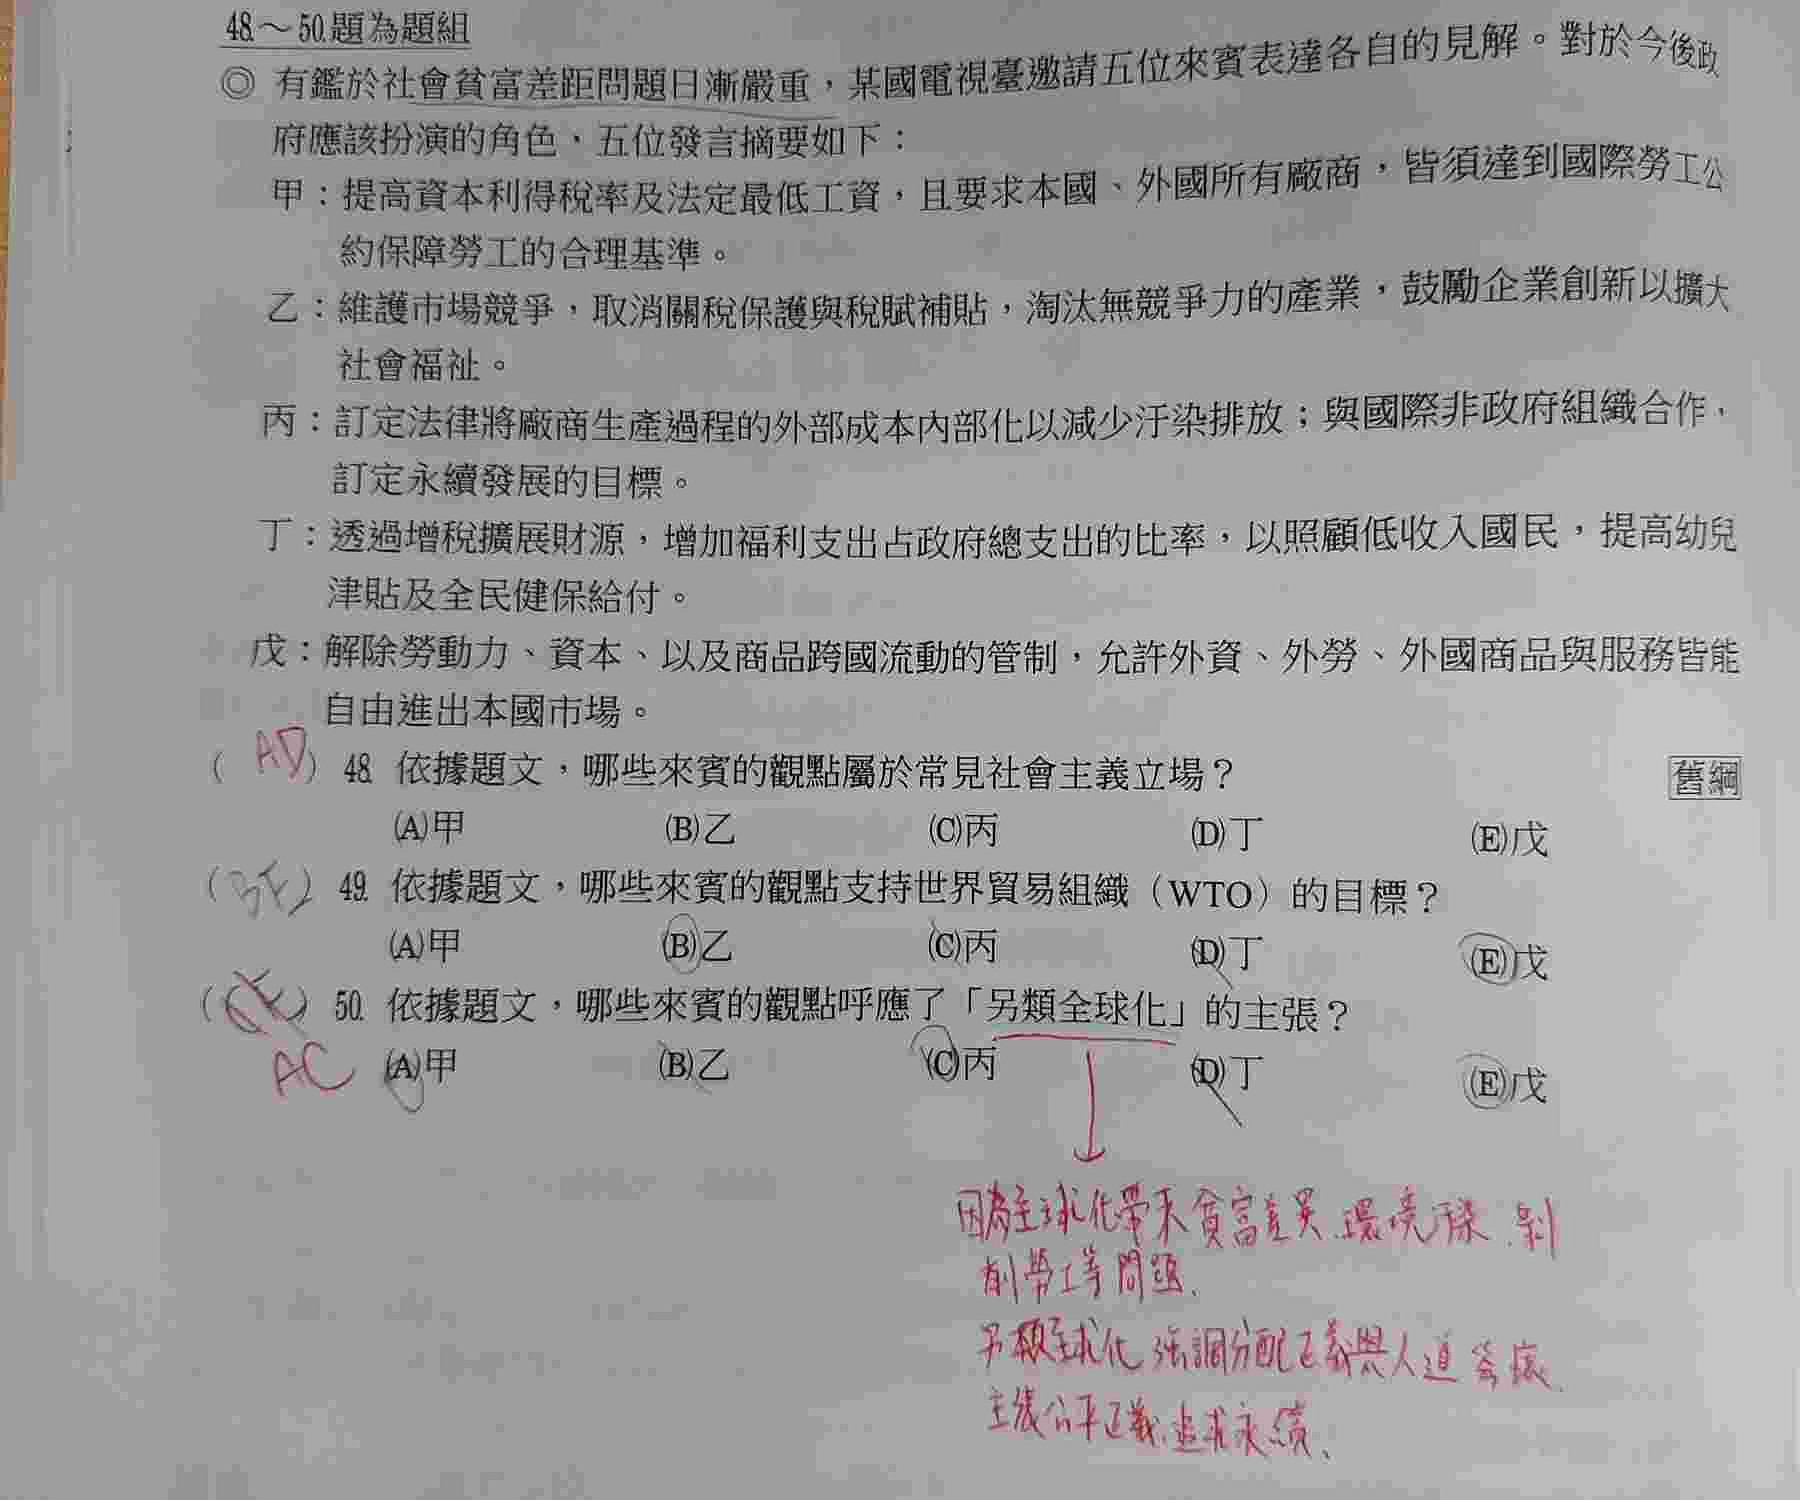 48.～50.題為題組
◎ 有鑑於社會貧富差距問題日漸嚴重，某國電視臺邀請五位來賓表達各自的見解。對於今後政
府應該扮演的角色，五位發言摘要如下：
甲：提高資本利得稅率及法定最低工資，且要求本國、外國所有廠商，皆須達到國際勞工公
約保障勞工的合理基準。
乙：維護市場競爭，取消關稅保護與稅賦補貼，淘汰無競爭力的產業，鼓勵企業創新以擴大
社會福祉。
丙：訂定法律將廠商生產過程的外部成本內部化以減少汙染排放；與國際非政府組織合作，
訂定永續發展的目標。
丁：透過增稅擴展財源，增加福利支出占政府總支出的比率，以照顧低收入國民，提高幼兒
津貼及全民健保給付。
戊：解除勞動力、資本、以及商品跨國流動的管制，允許外資、外勞、外國商品與服務皆能
自由進出本國市場。
( AD ) 48. 依據題文，哪些來賓的觀點屬於常見社會主義立場？ 舊綱
(A)甲 (B)乙 (C)丙 (D)丁 (E)戊
( BE ) 49. 依據題文，哪些來賓的觀點支持世界貿易組織（WTO）的目標？
(A)甲 (B)乙 (C)丙 (D)丁 (E)戊
( CE ) 50. 依據題文，哪些來賓的觀點呼應了「另類全球化」的主張？
AC (A)甲 (B)乙 (C)丙 (D)丁 (E)戊
因為全球化帶來貧富差異、環境汙染、剝
削勞工等問題、
另類全球化強調分配正義與人道
主張公平正義、追求永續、